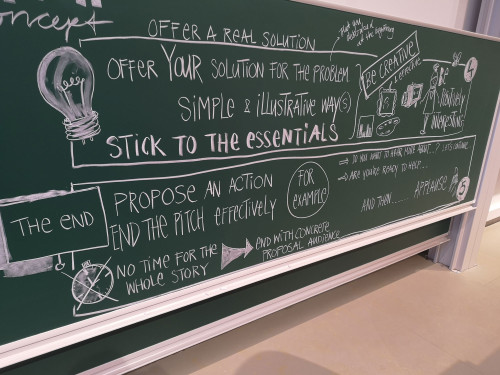 concept
OFFER A REAL SOLUTION
that you
at the beginning
OFFER YOUR SOLUTION FOR THE PROBLEM
SIMPLE & ILLUSTRATIVE WAY(S)
STICK TO THE ESSENTIALS
BE CREATIVE
& effective
4
POSITIVELY
INTERESTING
THE END
PROPOSE AN ACTION
END THE PITCH EFFECTIVELY
FOR
EXAMPLE
DO YOU WANT TO HEAR MORE ABOUT...? LET'S CONTINUE
ARE YOU READY TO HELP...
AND THEN...... APPLAUSE
5
NO TIME FOR THE
WHOLE STORY
END WITH CONCRETE
PROPOSAL AUDIENCE